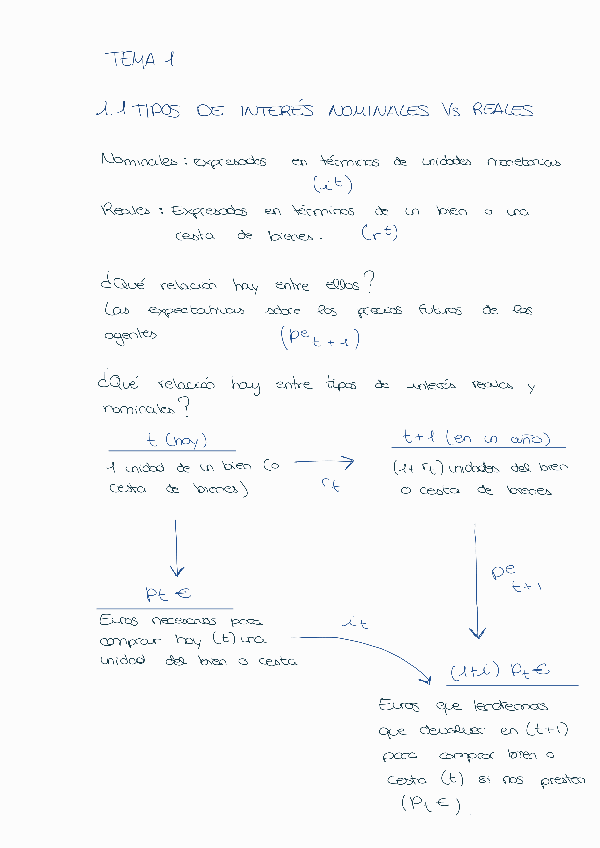 TEMA 1
1.1 TIPOS DE INTERÉS NOMINALES Vs REALES
Nominales : expresados en términos de unidades monetarias
(it)
Reales : Expresados en términos de un bien o una
cesta de bienes. (rt)
¿Qué relación hay entre ellos?
Las expectativas sobre los precios futuros de los
agentes (Pe t+1)
¿Qué relació hay entre tipos de interés reales y
nominales?
t (hoy)
1 unidad de un bien (o
cesta de bienes)
rt
t+1 (en un año)
(1+ rt) unidades del bien
o cesta de bienes
Pt €
Euros necesarios para
comprar hoy (t) una
unidad del bien o cesta
it
Pe t+1
(1+i) Pt €
Euros que tendremos
que devolver en (t+1)
para comprar bien o
cesta (t) si nos prestan
(Pt €)